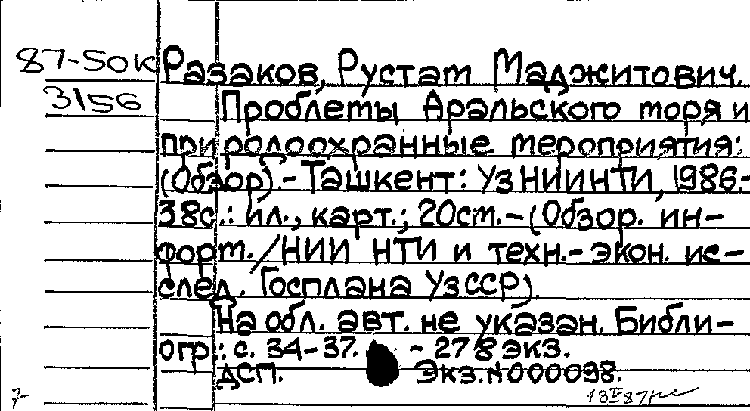 87-50K Разаков, Рустам Маджитович.
3156 Проблемы Аральского моря и
природоохранные мероприятия:
(Обзор).-Ташкент: УзНИИНТИ, 1986.-
38с.: ил., карт.; 20см.-(Обзор. ин-
форм./НИИ НТИ и техн.-экон. ис-
след. Госплана УзССР).
На обл. авт. не указан. Библи-
огр.: с. 34-37. - 278 экз.
ДСП. Экз.N000098.